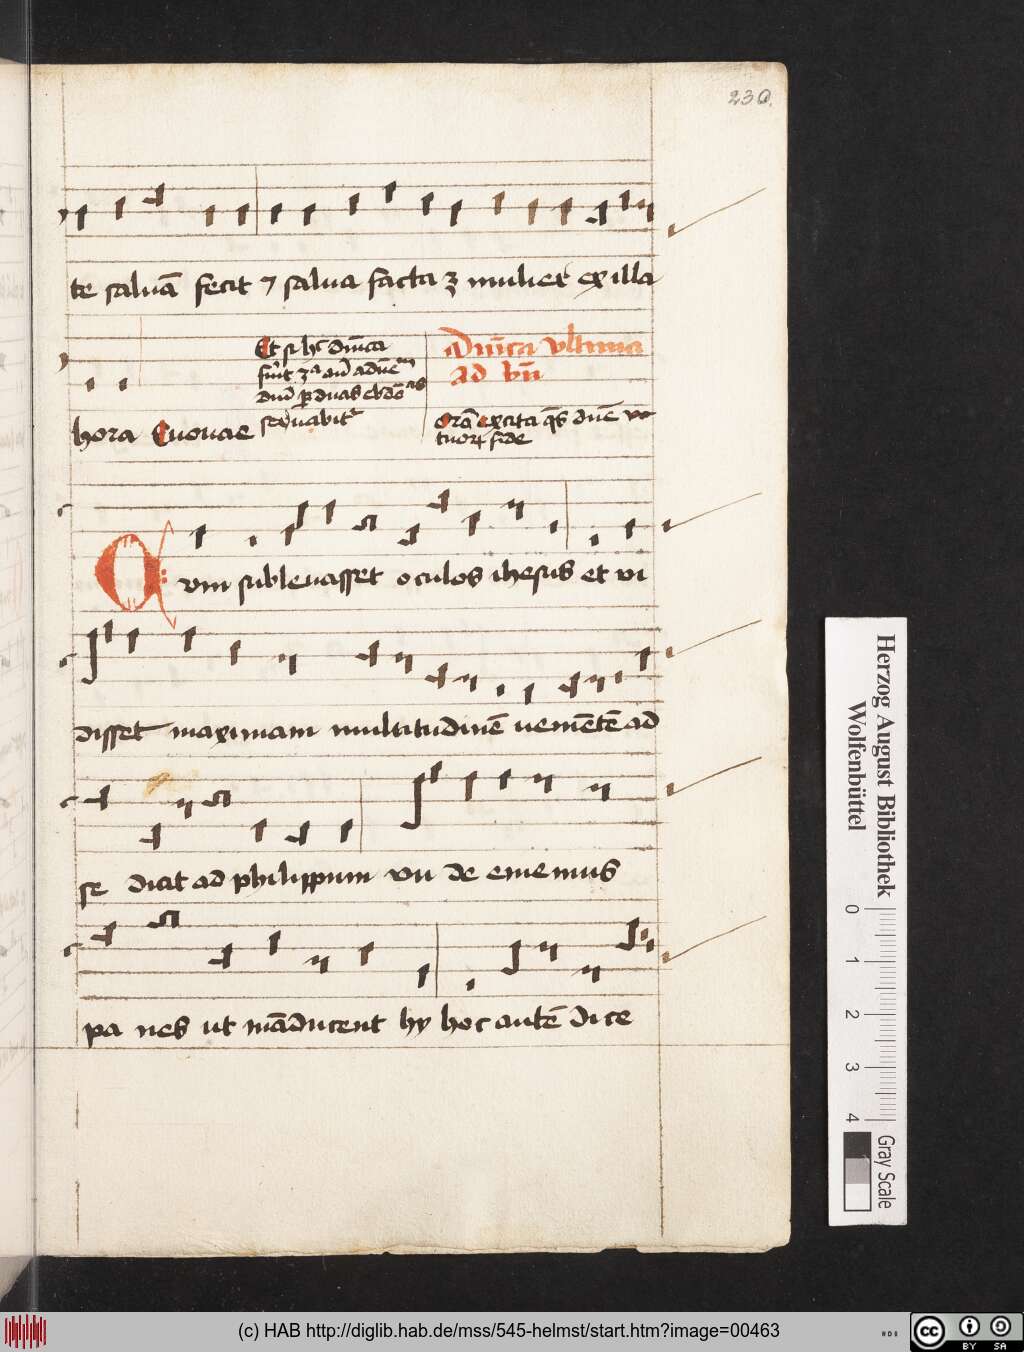 230.
te saluā fecit ⁊ salua facta ꝫ mulier ex illa
Et si hͦ dn̄ica
hora Euouae sequabitʳ
Dn̄ica vltima
ad bn̄
Orō excita q̄s dn̄e
tuorꝝ fide
Cvm subleuasset oculos ihesus et vi
disset maximam multitudinē uenientē ad
se dicit ad philippum vn de ememus
pa nes ut māducent hy hoc autē dice
Herzog August Bibliothek
Wolfenbüttel
0 1 2 3 4
Gray Scale
(c) HAB http://diglib.hab.de/mss/545-helmst/start.htm?image=00463
cc BY SA